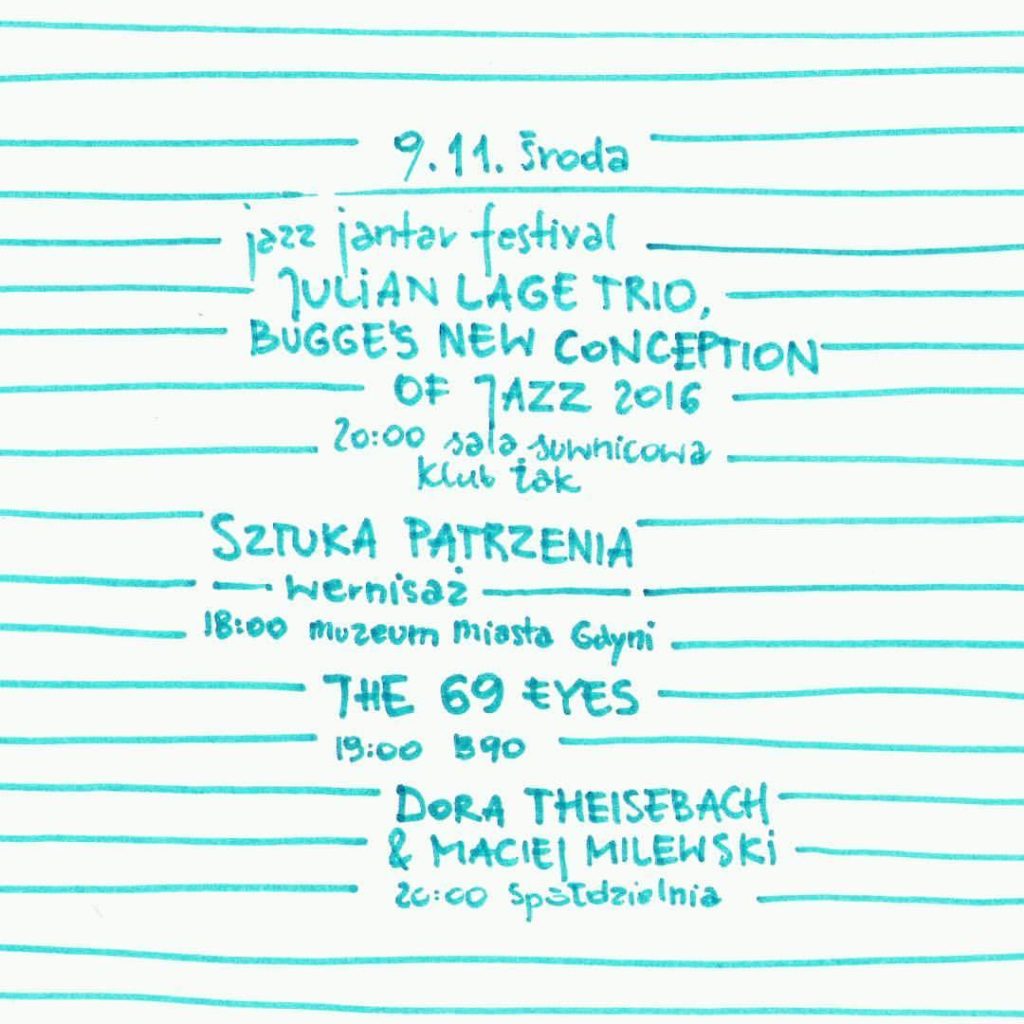 9.11. środa
jazz jantar festival
JULiAN LAGE TRIO,
BUGGE'S NEW CONCEPTION
OF JAZZ 2016
20:00 sala suwnicowa
klub żak
SZTUKA PATRZENIA
wernisaż
18:00 muzeum miasta Gdyni
THE 69 EYES
19:00 B90
DORA THEISEBACH
& MACIEJ MILEWSKi
20:00 Spółdzielnia